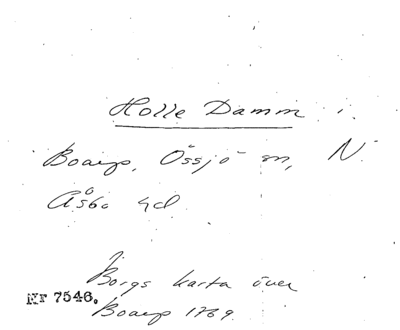 Holle Damm i
Boarp, Össjö sn, N.
Åsbo hd.
Borgs karta över
Nr 7546.
Boarp 1769.